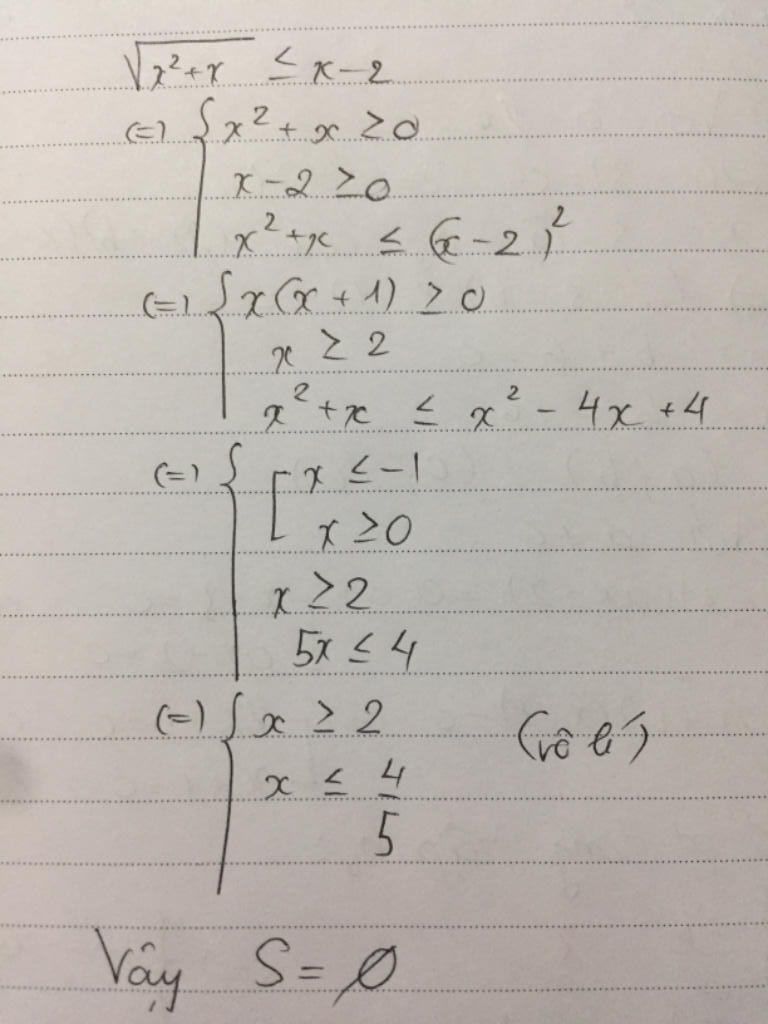 √(x²+x) ≤ x-2
(=) { x² + x ≥ 0
x - 2 ≥ 0
x² + x ≤ (x-2)²
(=) { x(x + 1) ≥ 0
x ≥ 2
x² + x ≤ x² - 4x + 4
(=) { [ x ≤ -1
x ≥ 0
x ≥ 2
5x ≤ 4
(=) { x ≥ 2 (vô lí)
x ≤ 4/5
Vậy S = ∅